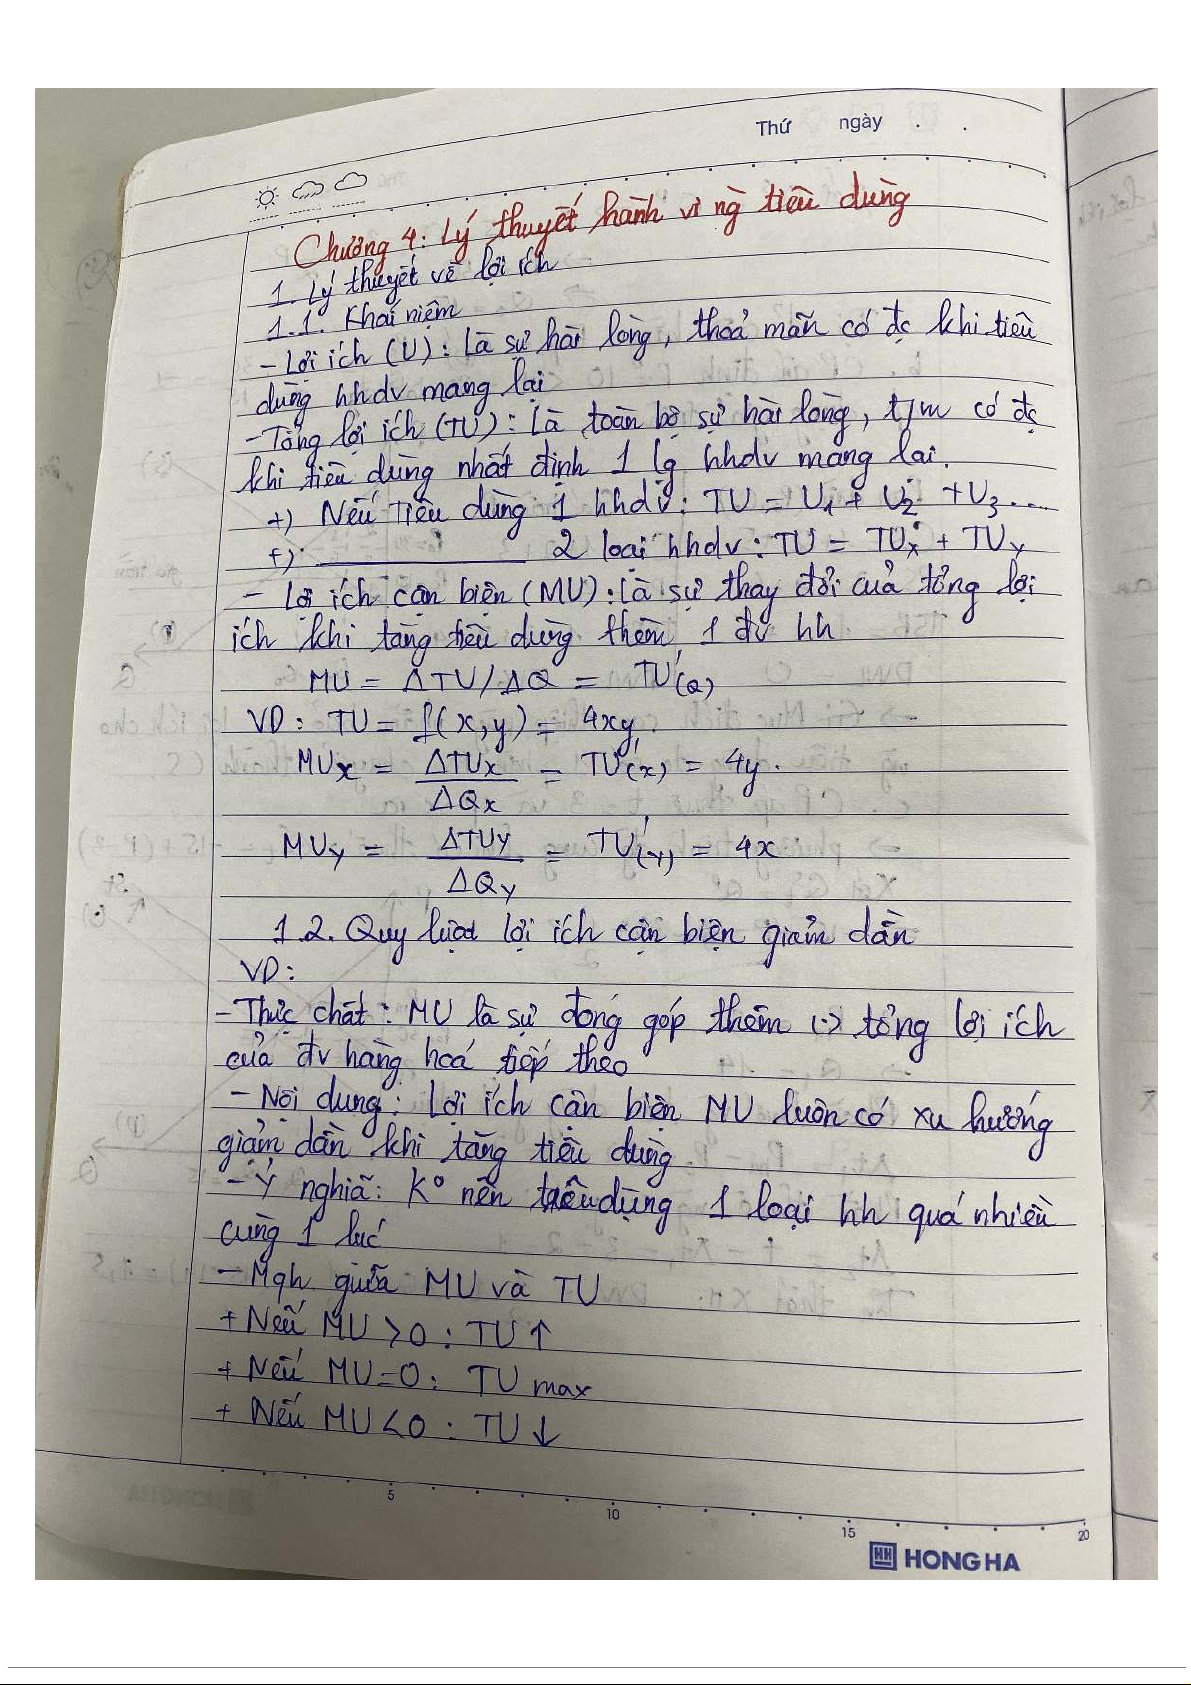 Thứ ngày . .
Chương 4: Lý thuyết hành vi ng tiêu dùng
1. Lý thuyết về lợi ích
1.1. Khái niệm
- Lợi ích (U): Là sự hài lòng, thoả mãn có đc khi tiêu
dùng hhdv mang lại
- Tổng lợi ích (TU): Là toàn bộ sự hài lòng, t/m có đc
khi tiêu dùng nhất định 1 lg hhdv mang lại.
+) Nếu tiêu dùng 1 hhdv: TU = U1 + U2 + U3 ...
+) ________ 2 loại hhdv: TU = TUx + TUy
- Lợi ích cận biên (MU): là sự thay đổi của tổng lợi
ích khi tăng tiêu dùng thêm 1 đv hh
MU = ΔTU/ΔQ = TU'(Q)
VD: TU = f(x,y) = 4xy
MUx = ΔTUx / ΔQx = TU'(x) = 4y.
MUY = ΔTUY / ΔQY = TU'(Y) = 4x
1.2. Quy luật lợi ích cận biên giảm dần
VD:
- Thực chất: MU là sự đóng góp thêm (-) tổng lợi ích
của đv hàng hoá tiếp theo
- Nội dung: Lợi ích cận biên MU luôn có xu hướng
giảm dần khi tăng tiêu dùng
- Ý nghĩa: K° nên tiêu dùng 1 loại hh quá nhiều
cùng 1 lúc
- Mqh giữa MU và TU
+ Nếu MU > 0 : TU ↑
+ Nếu MU = 0 : TU max
+ Nếu MU < 0 : TU ↓
5 10 15 20
HH HONG HA